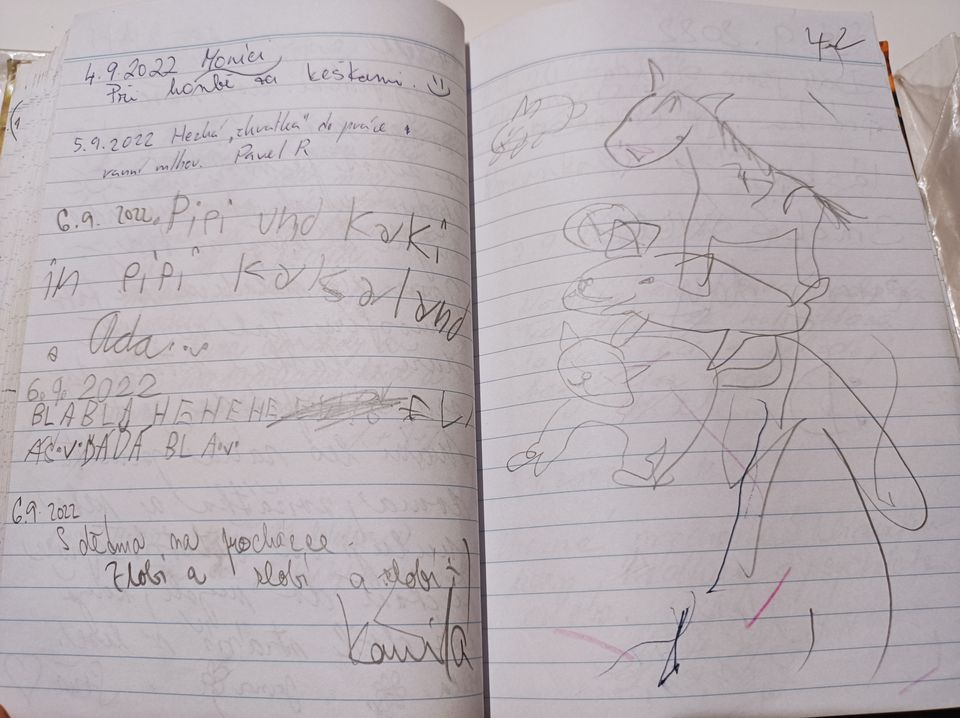 4.9.2022 Moníci
Při honbě za keškami. :-)
5.9.2022 Hezká „zkratka" do práce
ranní mlhou. Pavel R
6.9. 2022 Pipi und Kaki
in pipi Kakaland
Ada
6.9.2022
BLABLA HEHEHE
BLA
6.9. 2022
S dětma na procházce.
Zlobí a zlobí a zlobí
Kamila